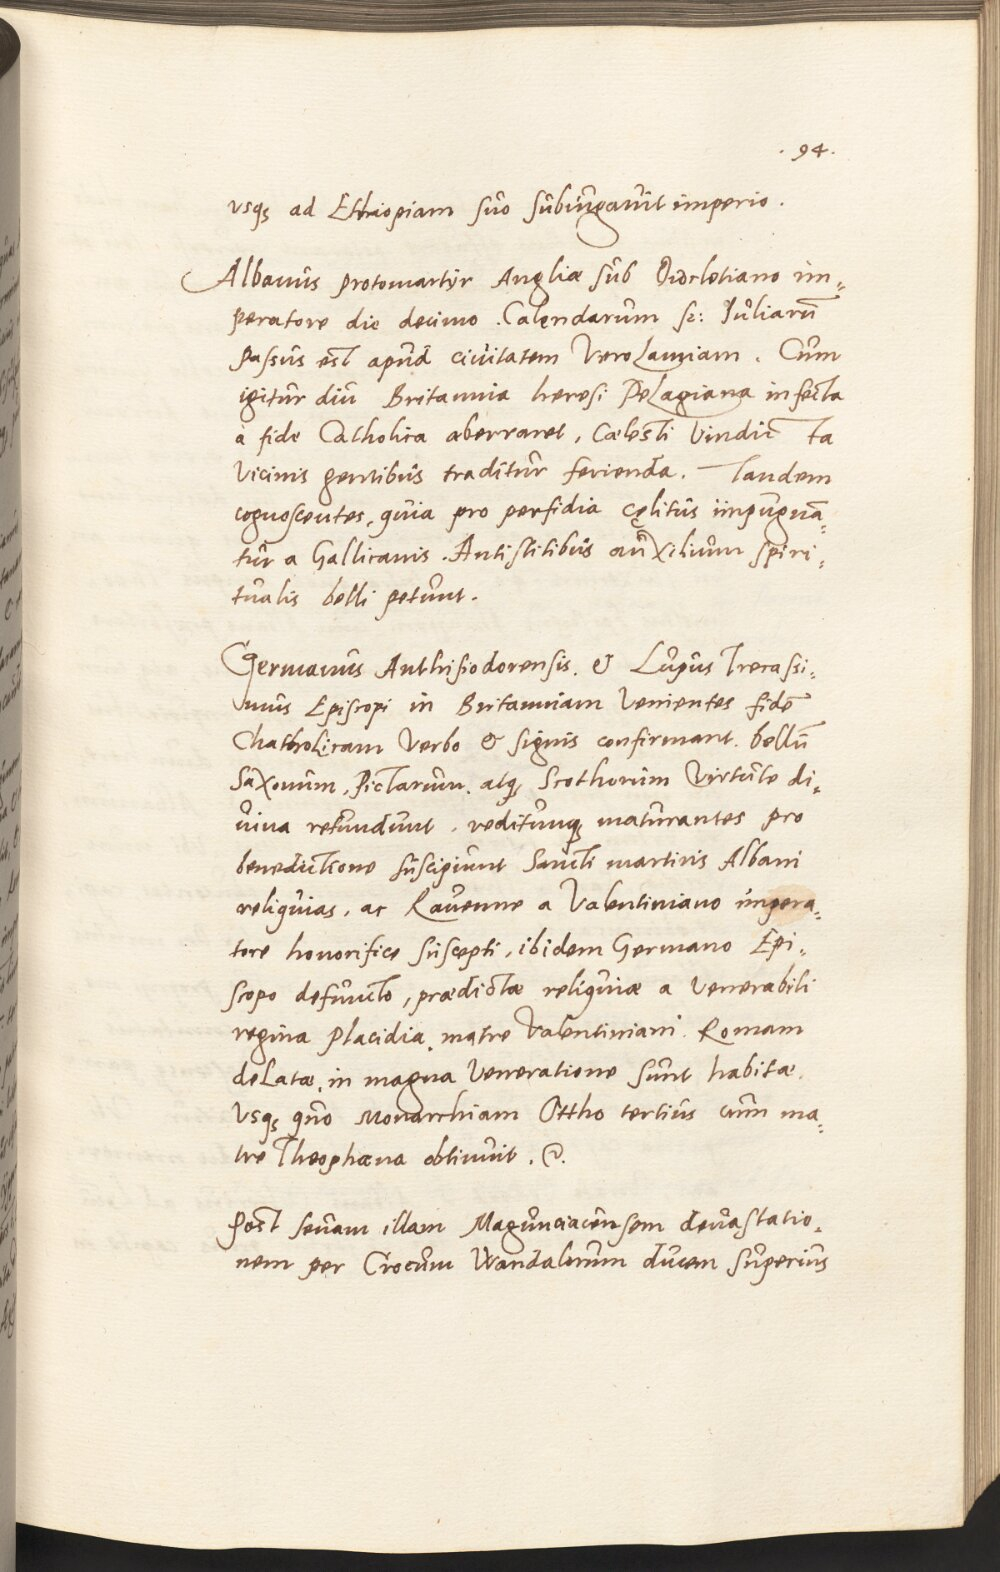 . 94.
vsqꝫ ad Ethiopiam suo subiungauit imperio .
Albanus protomartyr Angliæ sub Diocletiano im=
peratore die decimo . Calendarum sc: Iuliarū
passus est apud ciuitatem Verolamiam . Cum
igitur diu Britannia heresi Pelagiana infecta
a fide Catholica aberraret, Cœlesti Vindic ta
Vicinis gentibus traditur ferienda. Tandem
cognoscentes, quia pro perfidia cęlitus impugnā=
tur a Gallicanis . Antistitibus auxilium spiri=
tualis belli petunt .
Germanus Anthisiodorensis. & Lupus Trecassi=
nus Episcopi in Britanniam Venientes fidē
Chatholicam Verbo & signis confirmant. bellū
Saxonum, Pictarum. atqꝫ Scothorum Virtute di=
uina retundunt . reditunqꝫ maturantes pro
benedictione suscipiunt Sancti martiris Albani
reliquias, ac Rauenne a Valentiniano impera=
tore honorifice suscepti, ibidem Germano Epi=
scopo defuncto, prædictæ reliquiæ a Venerabili
regina Placidia, matre Valentiniani. Romam
delatæ, in magna Veneratione sunt habitæ.
Vsqꝫ quo Monarchiam Ottho tertius cum ma=
tre Theophana obtinuit . &.
Post seuam illam Magunciacensem deuastatio=
nem per Crocum Wandalorum ducem superius